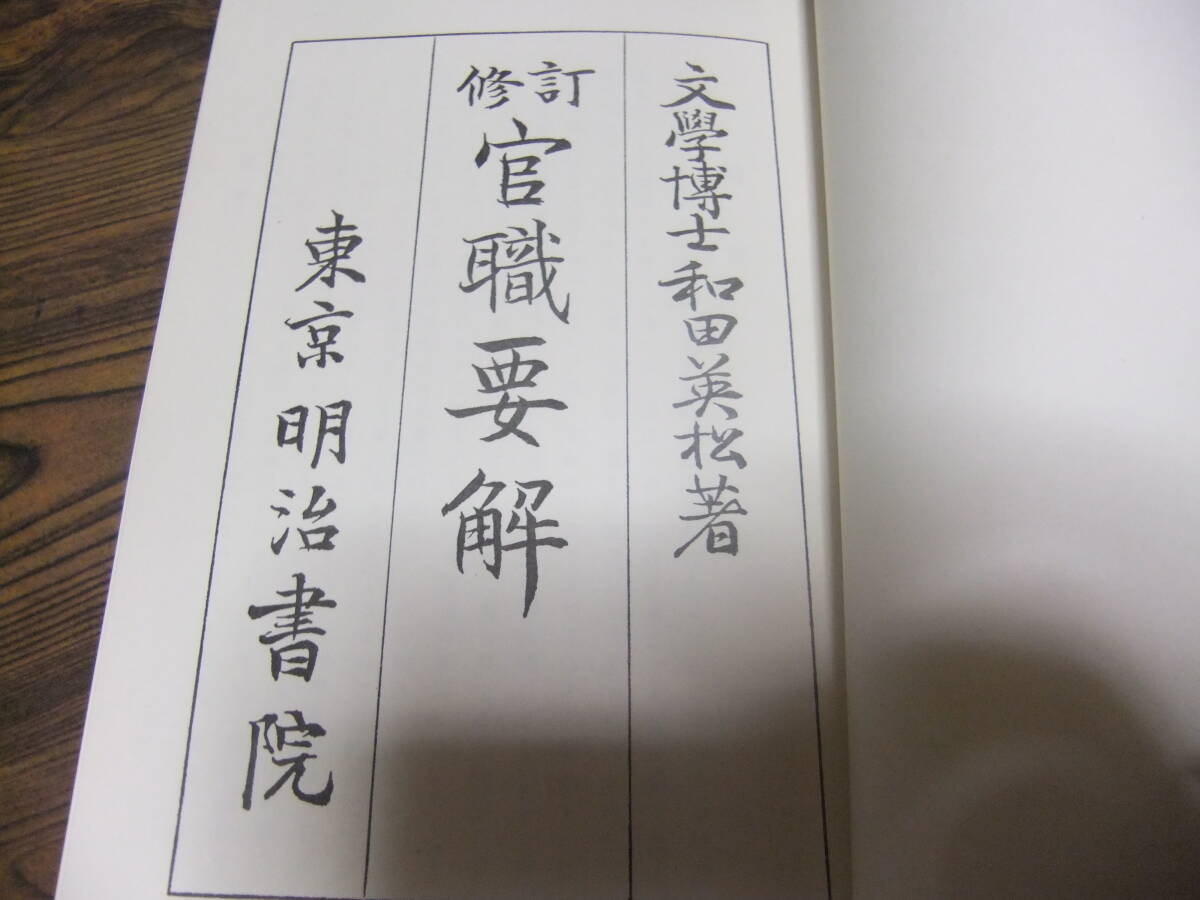 文學博士和田英松著
修訂
官職要解
東京明治書院